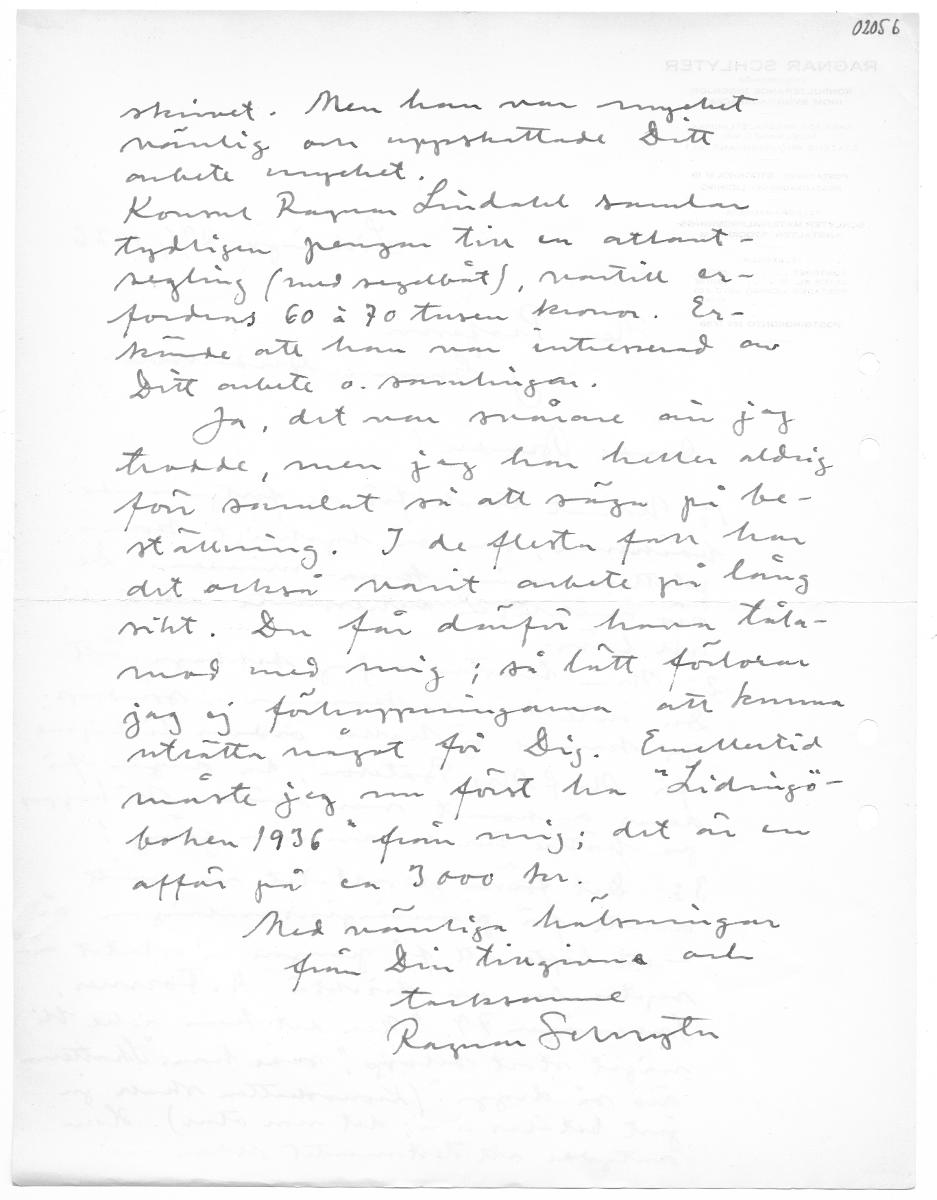 02056
skrivet. Men han var mycket
vänlig och uppskattade Ditt
arbete mycket.
Konsul Ragnar Lindahl samlar
tydligen pengar till en atlant-
segling (med segelbåt), vartill er-
fordras 60 à 70 tusen kronor. Er-
kände att han var intresserad av
Ditt arbete o. samlingar.
Ja, det var svårare än jag
trodde, men jag har heller aldrig
förr samlat så att säga på be-
ställning. I de flesta fall har
det också varit arbete på lång
sikt. Du får därför hava tåla-
mod med mig; så lätt förlorar
jag ej förhoppningarna att kunna
uträtta något för Dig. Emellertid
måste jag nu först ha "Lidingö-
boken 1936" från mig; det är en
affär på ca 3000 kr.
Med vänliga hälsningar
från Din tillgivne och
tacksamme
Ragnar Schlyter
RAGNAR SCHLYTER